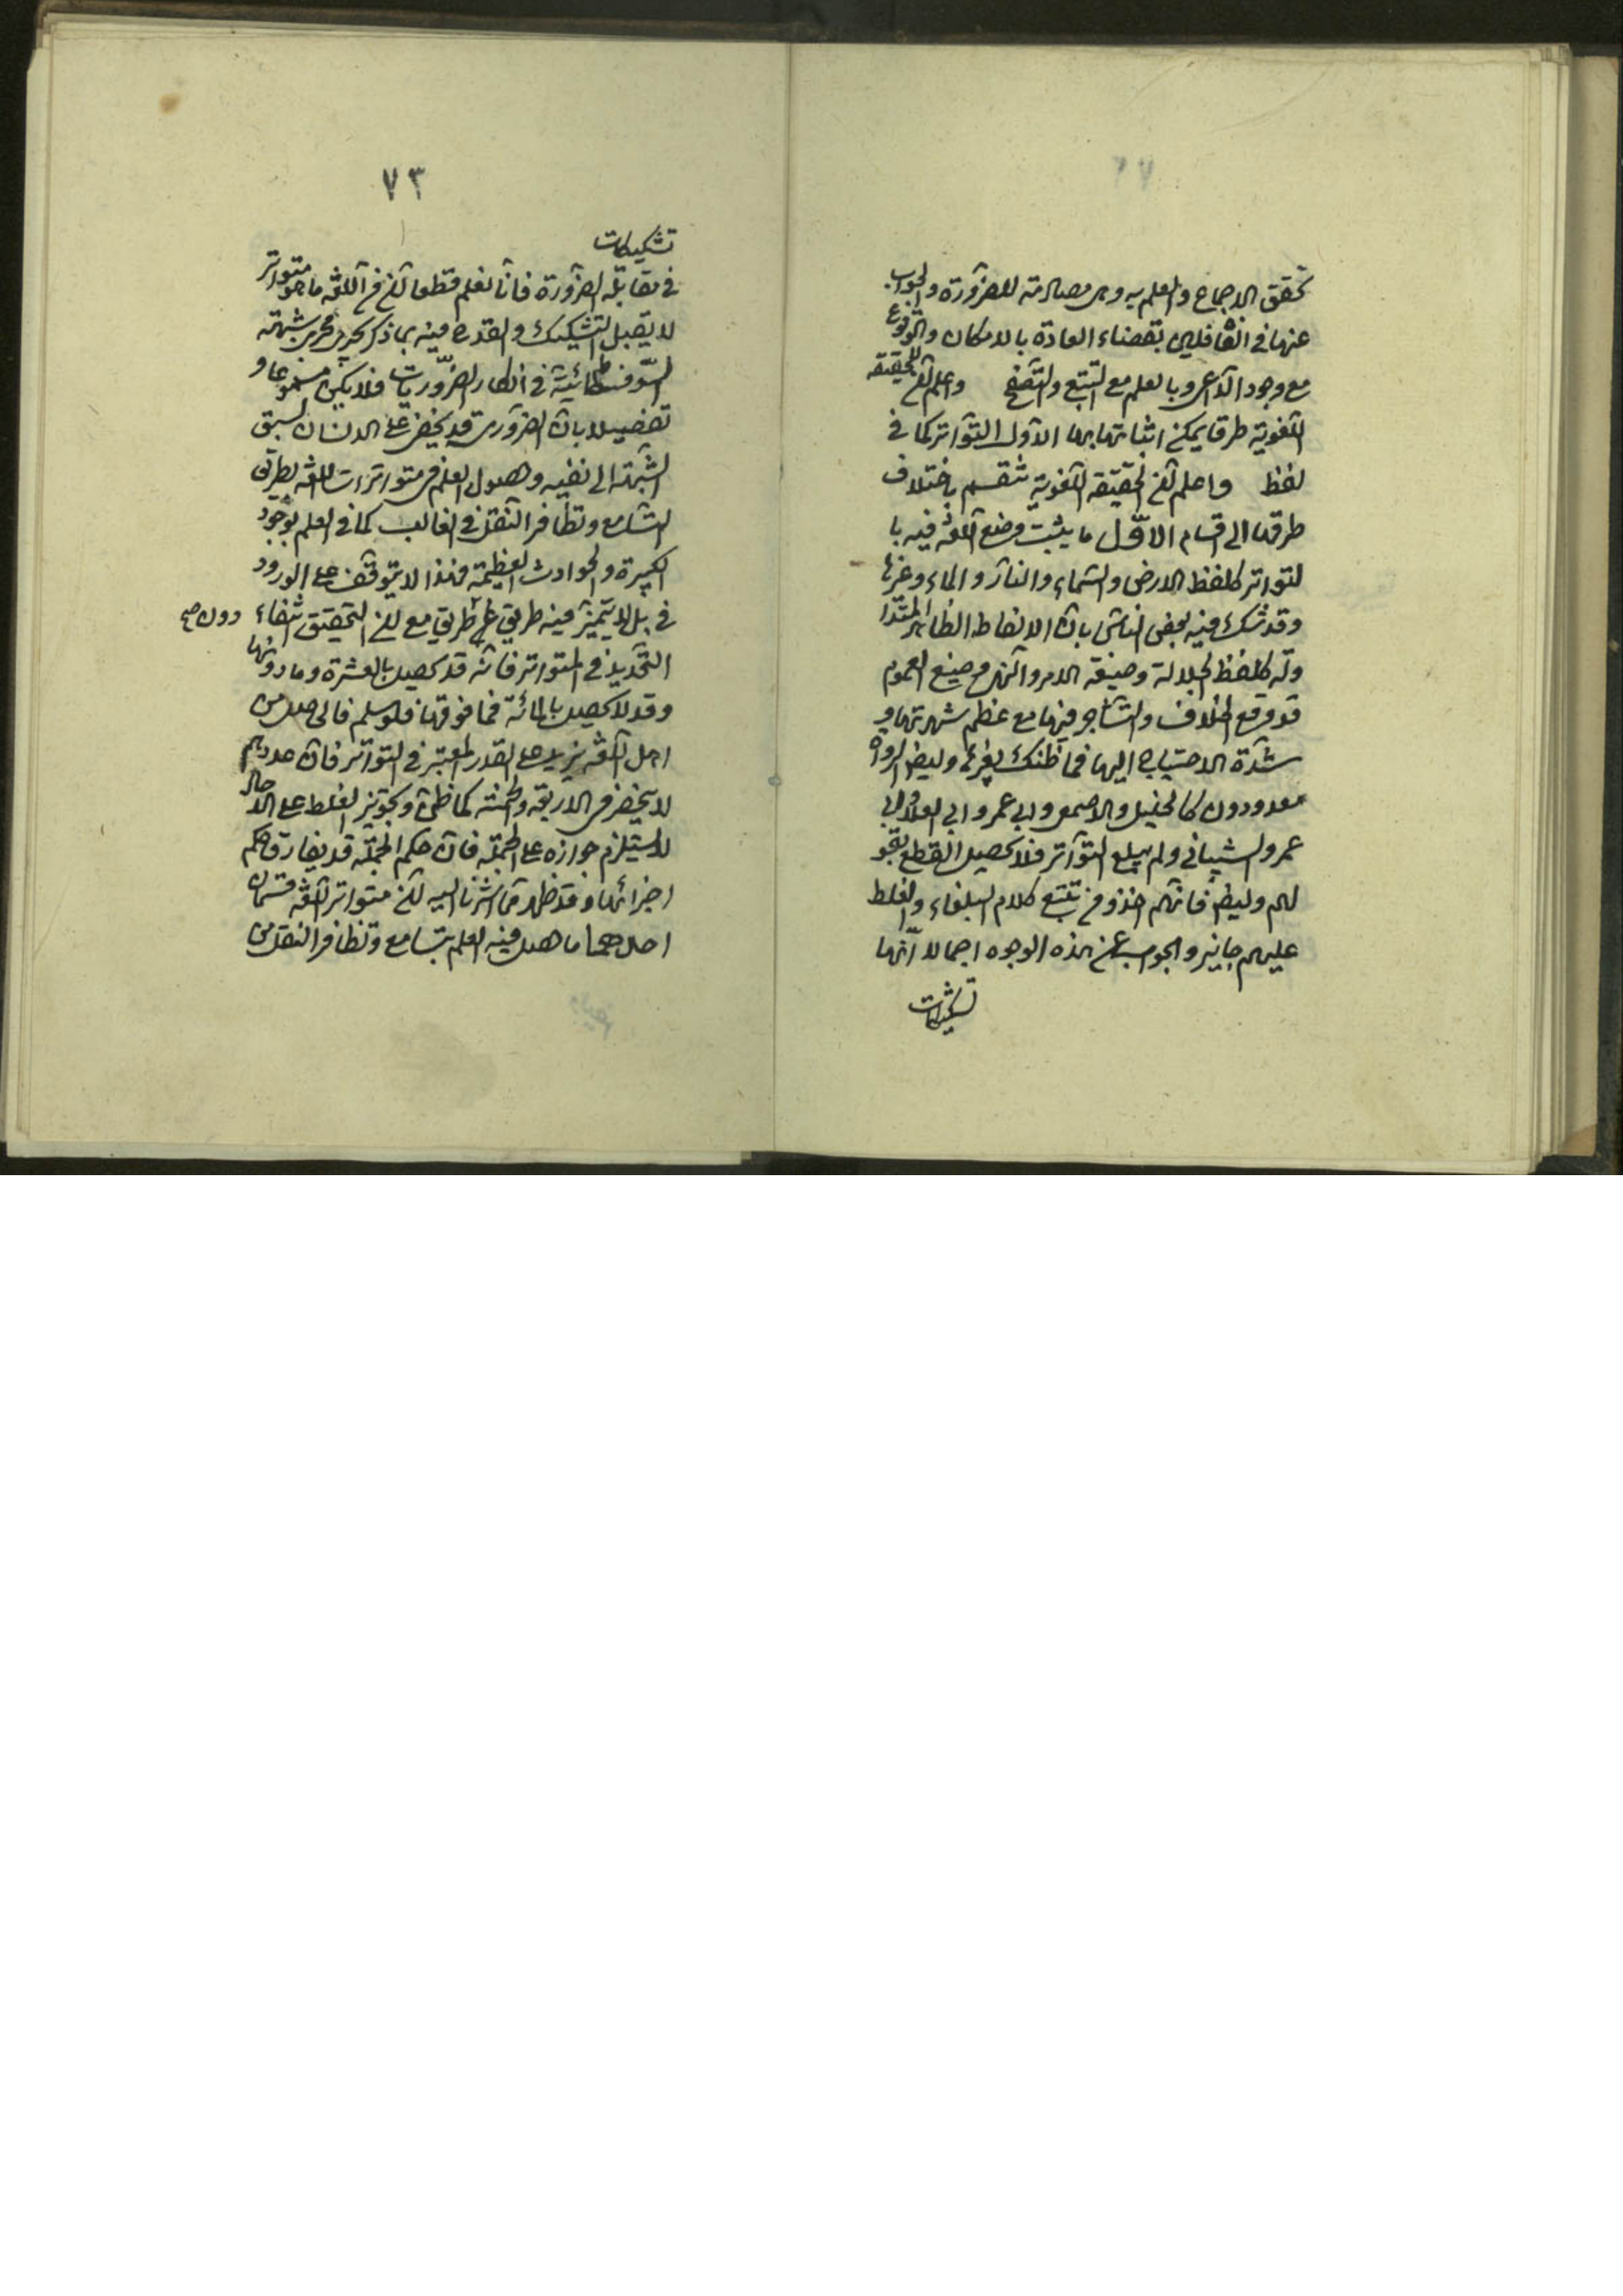 تحقق الاجماع والعلم به وهى مصادمة للضرورة والجواب
عنها فى الغافلين بقضاء العادة بالامكان والوقوع
مع وجود الداعى وبالعلم مع التتبع والتصفح واعلم ان للحقيقة
اللغوية طرقا يمكن اثباتها بها الاول التواتر كما فى
لفظ واعلم ان الحقيقة اللغوية تنقسم باختلاف
طرقها الى اقسام الاول ما يثبت وضع اللغة فيه با
لتواتر كلفظ الارض والسماء والنار والماء وغيرها
وقد شك فيه بعض الناس بان الالفاظ الظاهر المتدا
ولة كلفظ الجلالة وصيغة الامر والنهى وصيغ العموم
قد وقع الخلاف والتشاجر فيها مع عظم شهرتها و
شدة الاحتياج اليها فما ظنك بغيرها وايضا الرواة
معدودون كالخليل والاصمعى وابى عمرو ابن العلا وابى
عمرو الشيبانى ولم يبلغ التواتر فلا يحصل القطع بقو
لهم وايضا فانهم اخذوا من تتبع كلام البلغاء والغلط
عليهم جايز والجواب عن هذه الوجوه اجمالا انها
تشكيكات
٧٣
تشكيكات
فى مقابلة الضرورة فانا نعلم قطعا ان من اللغة ما هو متواتر
لا يقبل التشكيك والقدح فيه بما ذكر يجرى مجرى شبهة
السوفسطائية فى انكار الضروريات فلا يكون مسموعا و
تفصيلا بان الضرورى قد يخفى على الانسان لسبق
الشبهة الى نفيه وحصول العلم فى متواترات اللغة بطريق
التسامع وتظافر النقل فى الغالب كما فى العلم بوجود
الكبيرة والحوادث العظيمة وهذا لا يتوقف على الورود
فى بل لا يتميز فيه طريق عن طريق مع ان التحقيق انتفاء
دون صح
التحديد فى المتواتر فانه قد يحصل بالعشرة وما دونها
وقد لا يحصل بالمائة فما فوقها فلو سلم فالحاصل من
اهل اللغة يزيد على القدر المعتبر فى التواتر فان عددهم
لا ينحصر فى الاربعة والخمسة كما ظن وتجويز الغلط على الاحاد
لا يستلزم جوازه على الجملة فان حكم الجملة قد يفارق حكم
اجزائها وقد ظهر مما اشرنا اليه ان متواتر اللغة قسمان
احدهما ما حصل فيه العلم بتسامع وتظافر النقل من